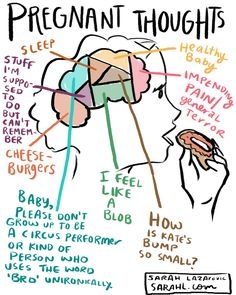 PREGNANT THOUGHTS
SLEEP
STUFF
I'M
SUPPO
SED
TO
DO
BUT
CAN'T
REMEM-
BER
CHEESE-
BURGERS
Healthy
Baby
IMPENDING
PAIN/
general
TERROR
BABY,
PLEASE DON'T
GROW UP TO BE
A CIRCUS PERFORMER
OR KIND OF
PERSON WHO
USES THE WORD
'BRO' UNIRONICALLY.
I FEEL
LIKE
A
BLOB
HOW
IS KATE'S
BUMP
SO SMALL?
SARAH LAZAROVIC
SARAHL.COM